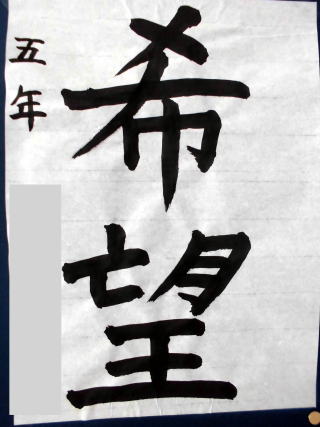 希望
五年